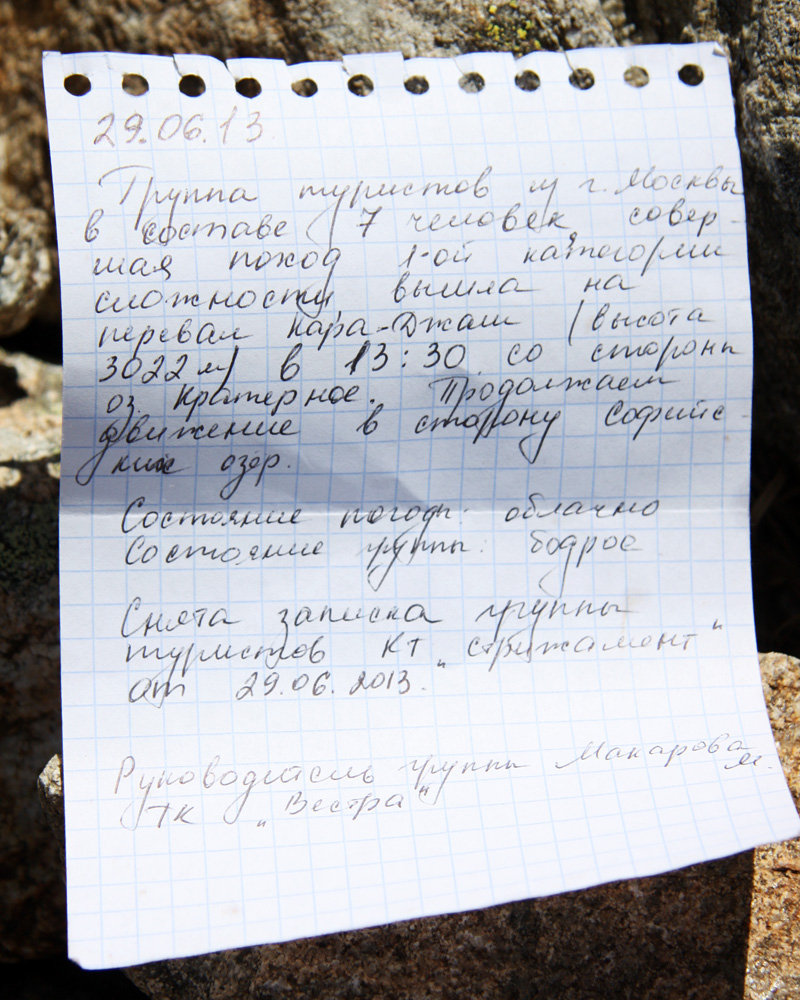 29.06.13
Группа туристов из г. Москвы
в составе 7 человек, совер-
шая поход 1-ой категории
сложности, вышла на
перевал Кара-Джаш (высота
3022 м) в 13:30 со стороны
оз. Кратерное. Продолжаем
движение в сторону Софийс-
ких озер.
Состояние погоды: облачно
Состояние группы: бодрое
Снята записка группы
туристов КТ „Стрижамент"
от 29.06.2013.
Руководитель группы Макарова М.
ТК „Вестра"